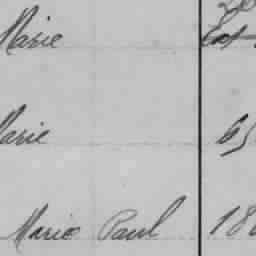 Marie
Marie 65
Marie Paul 18